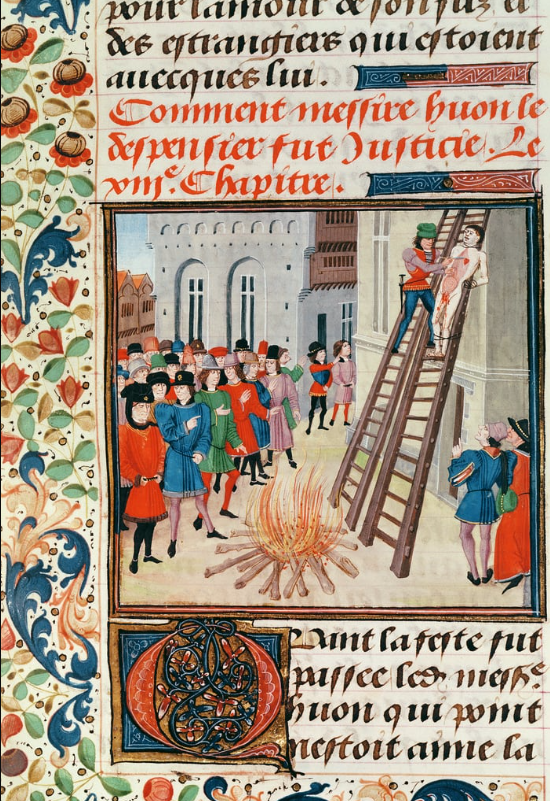 pour lamour de son filz et
des estrangiers qui estoient
auecques lui.
Comment messire huon le
despensier fut Justicie. Le
viii.e Chapitre.
Quant la feste fut
passee led messe
huon qui point
nestoit aime la